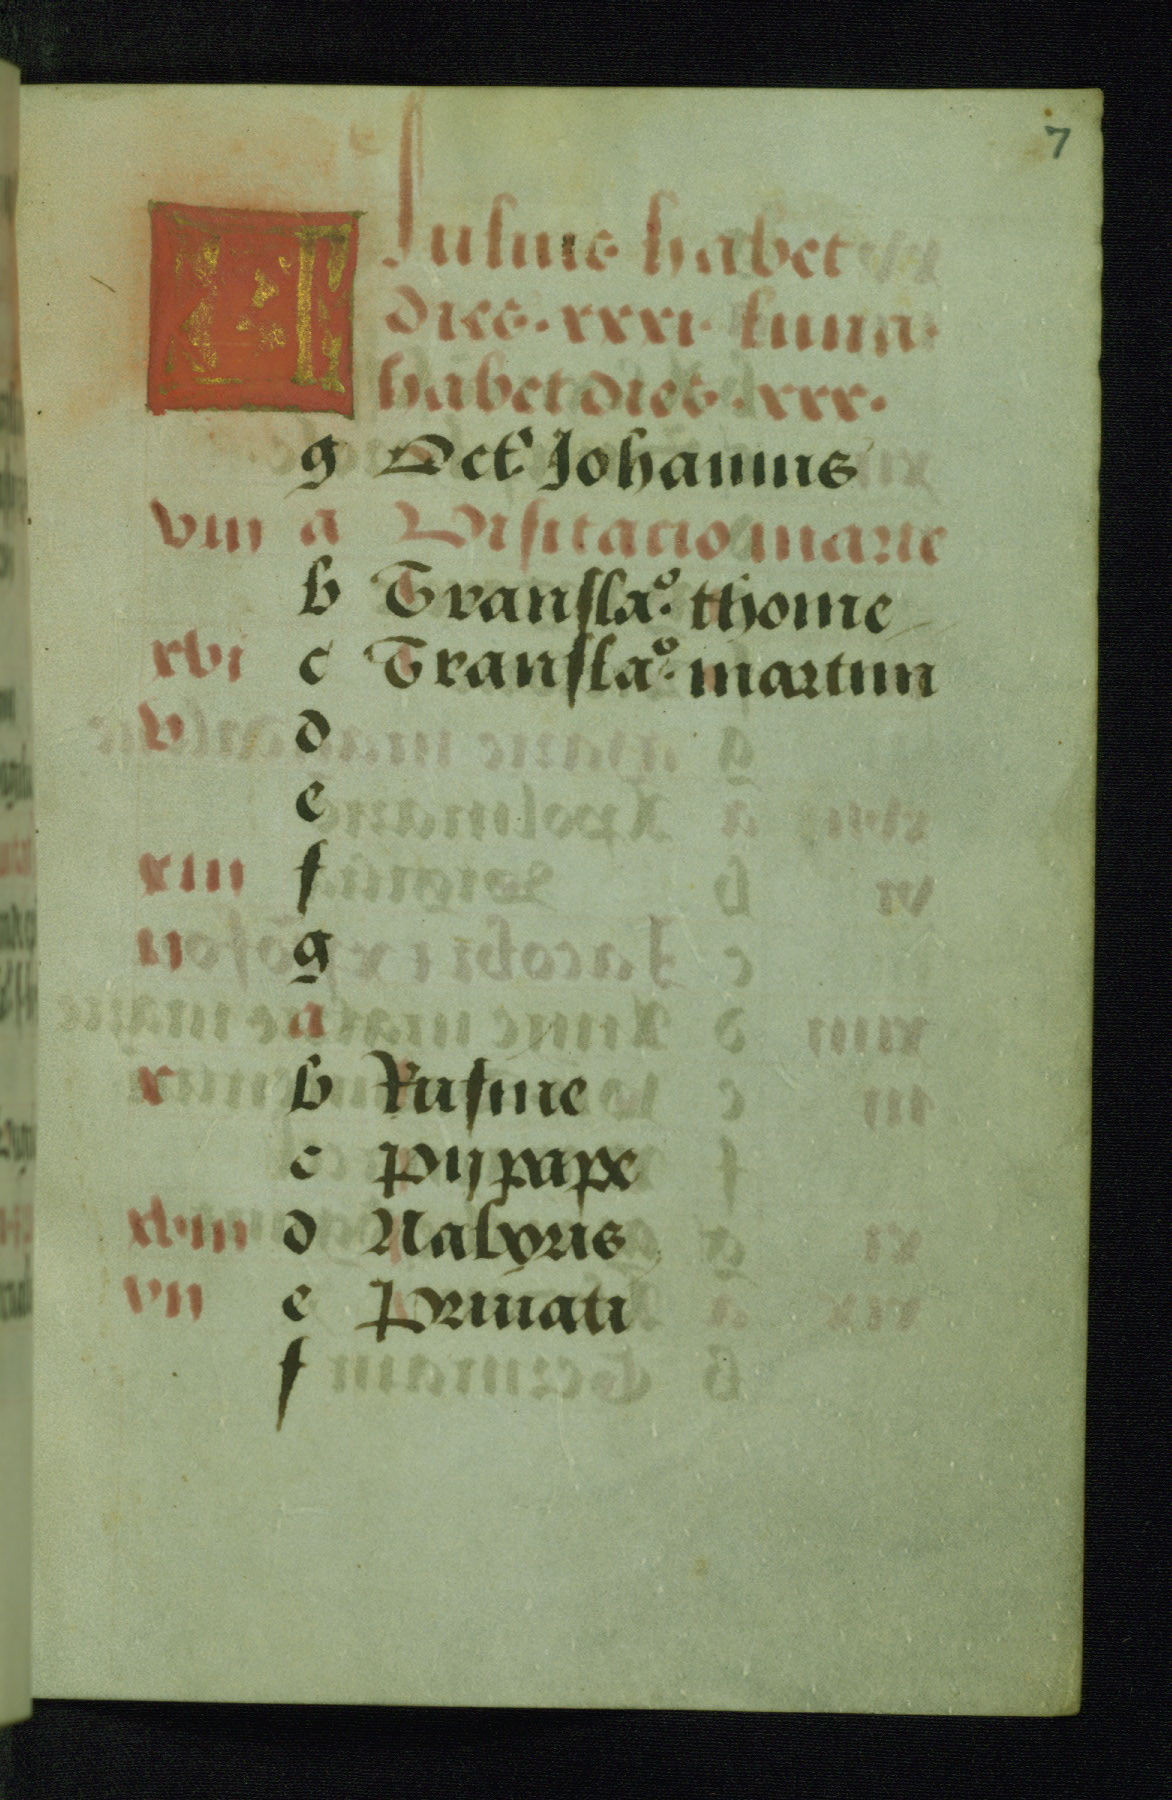 7
KL Julius habet
dies. xxxi. luna.
habet dies. xxx.
g Oct' Johannis
viii a Visitacio marie
b Transla°. thome
xvi c Transla°. martini
v d
e
xiii f
ii g
a
x b Rufine
c pij pape
xviii d Naboris
vii e Privati
f